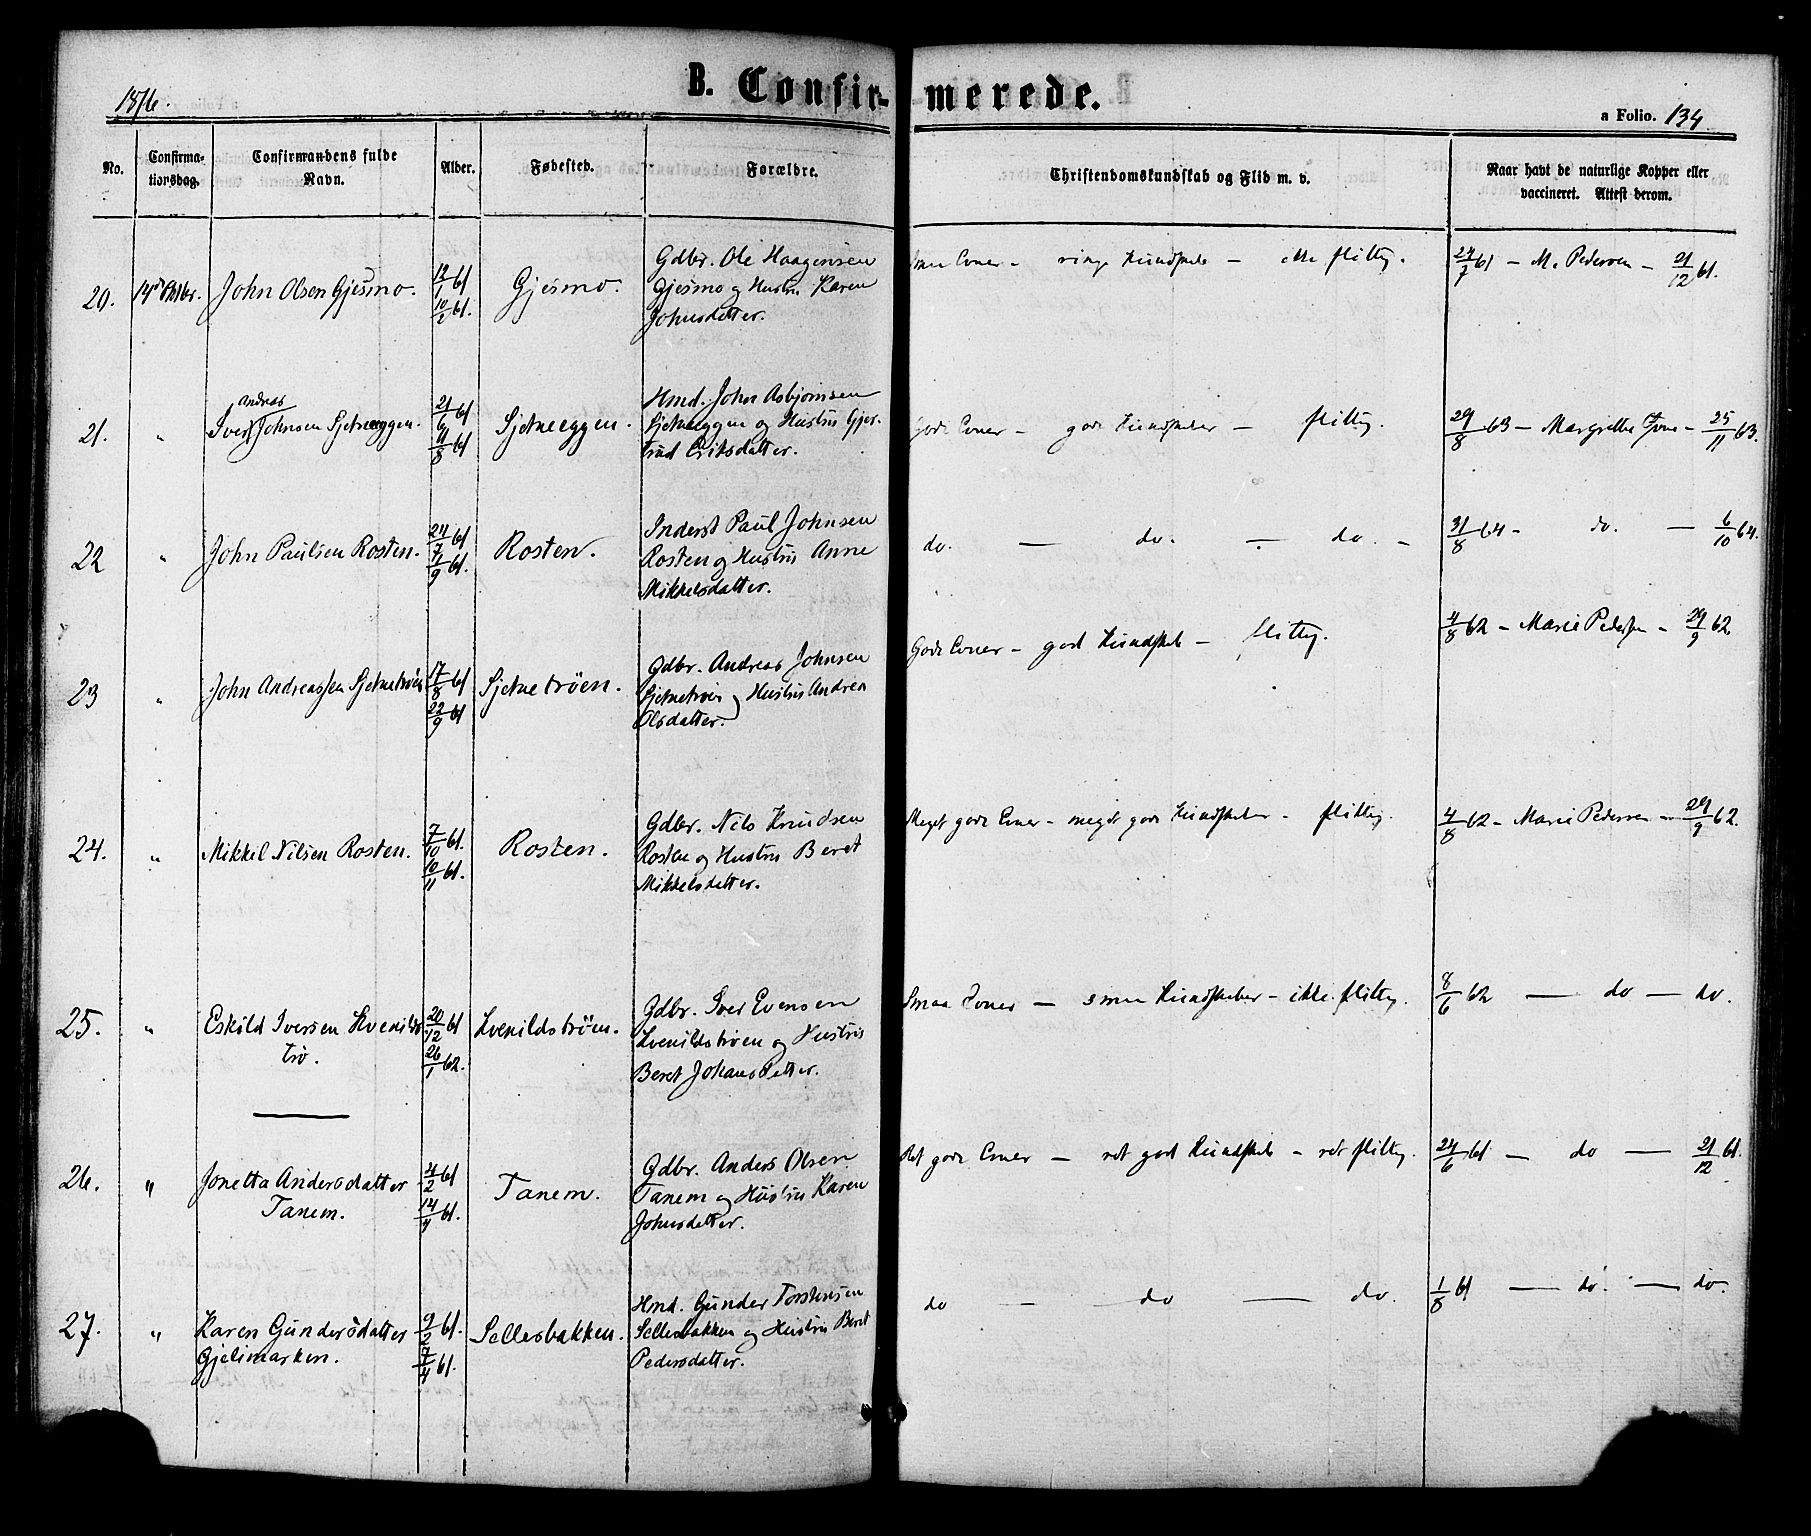 1876.
B. Confir-merede.
a Folio. 134
No.
Confirma-
tionsdag.
Confirmandens fulde
Navn.
Alder.
Fødested.
Forældre.
Christendomskundskab og Flid m. v.
Naar havt de naturlige Kopper eller
vaccineret. Attest derom.
20. 14de Oktbr. John Olsen Gjesmo. 12/1 61 10/2 61. Gjesmo.
Gdbr. Ole Haagensen
Gjesmo og Hustru Karen
Johnsdatter.
Smaa Evner – ringe Kundskab – ikke flittig. 24/7 61 – M. Pedersen – 21/12 61.
21. " Iver Andreas Johnsen Sjetneeggen. 21/6 61 11/8 61 Sjetneeggen.
Hmd. John Asbjørnsen
Sjetneeggen og Hustru Gjer-
trud Eriksdatter.
Gode Evner – gode Kundskaber – flittig. 29/8 63 – Margrethe – 25/11 63.
22 " John Paulsen Rosten. 24/7 61 7/9 61. Rosten.
Inderst Paul Johnsen
Rosten og Hustru Anne
Mikkelsdatter.
do. — do. — do. – 31/8 64 – do. — 6/10 64.
23 " John Andreassen Sjetnetrøen 17/8 61 22/9 61 Sjetnetrøen.
Gdbr. Andreas Johnsen
Sjetnetrøen og Hustru Andrea
Olsdatter.
Gode Evner – god Kundskab – flittig. 4/8 62 – Marie Pedersen – 29/9 62
24. " Mikkel Nilsen Rosten. 7/10 61. 10/11 61. Rosten.
Gdbr. Nils Knudsen
Rosten og Hustru Beret
Mikkelsdatter.
Meget gode Evner – meget gode Kundskaber – flittig. 4/8 62 – Marie Pedersen – 29/9 62.
25. " Eskild Iversen Kvenilds
trø. 20/12 61 26/1 62. Kvenildstrøen.
Gdbr. Iver Evensen
Kvenildstrøen og Hustru
Beret Johansdatter.
Smaa Evner — smaa Kundskaber – ikke flittig. 8/6 62 — do — do.
26. " Jonetta Andersdatter
Tanem. 4/2 61 14/4 61. Tanem.
Gdbr. Anders Olsen
Tanem og Hustru Karen
Johnsdatter.
Ret gode Evner — ret god Kundskab – ret flittig. 24/6 61 — do — 21/12 61.
27. " Karen Gundersdatter
Gjelimarken. 9/2 61. 7/4 61. Sellesbakken.
Hmd. Gunder Torstensen
Sellesbakken og Hustru Beret
Pedersdatter.
do — do — do. 1/8 61 — do. — do.